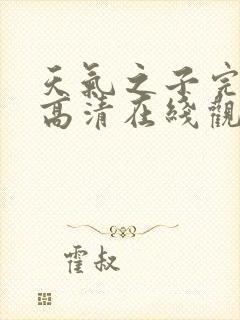 天氣之子完
高清在綫觀
霍叔